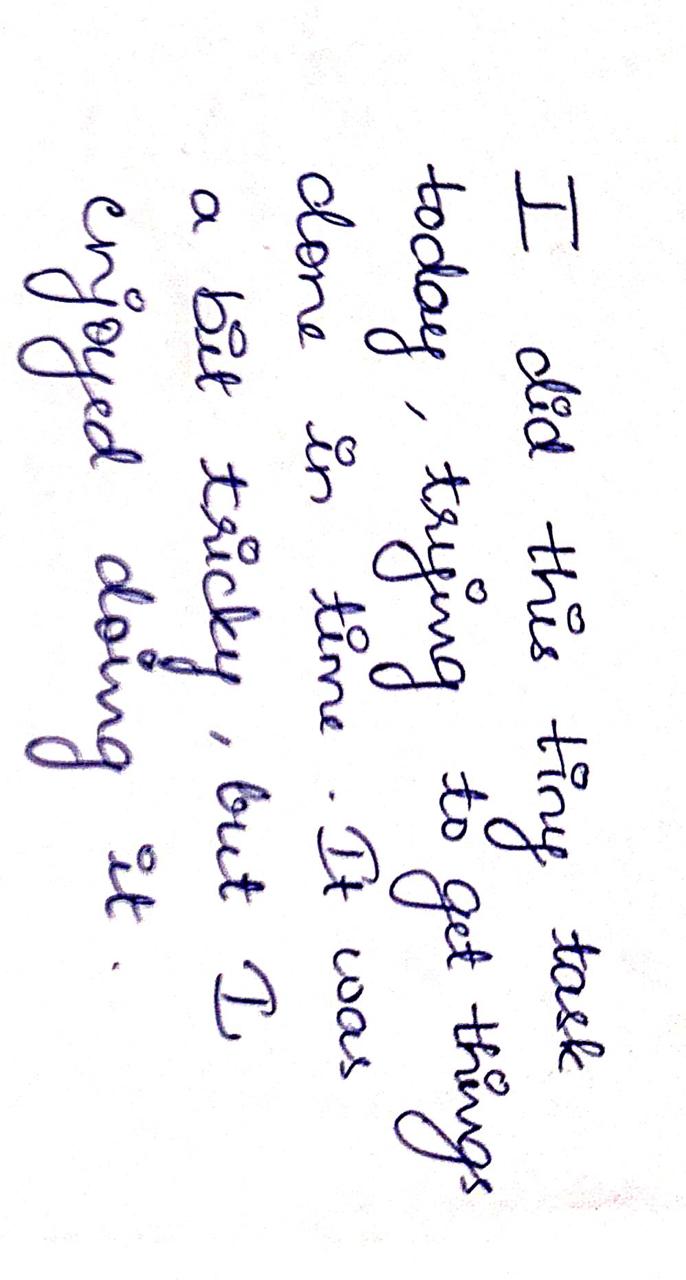 I did this tiny task
today, trying to get things
done in time. It was
a bit tricky, but I
enjoyed doing it.